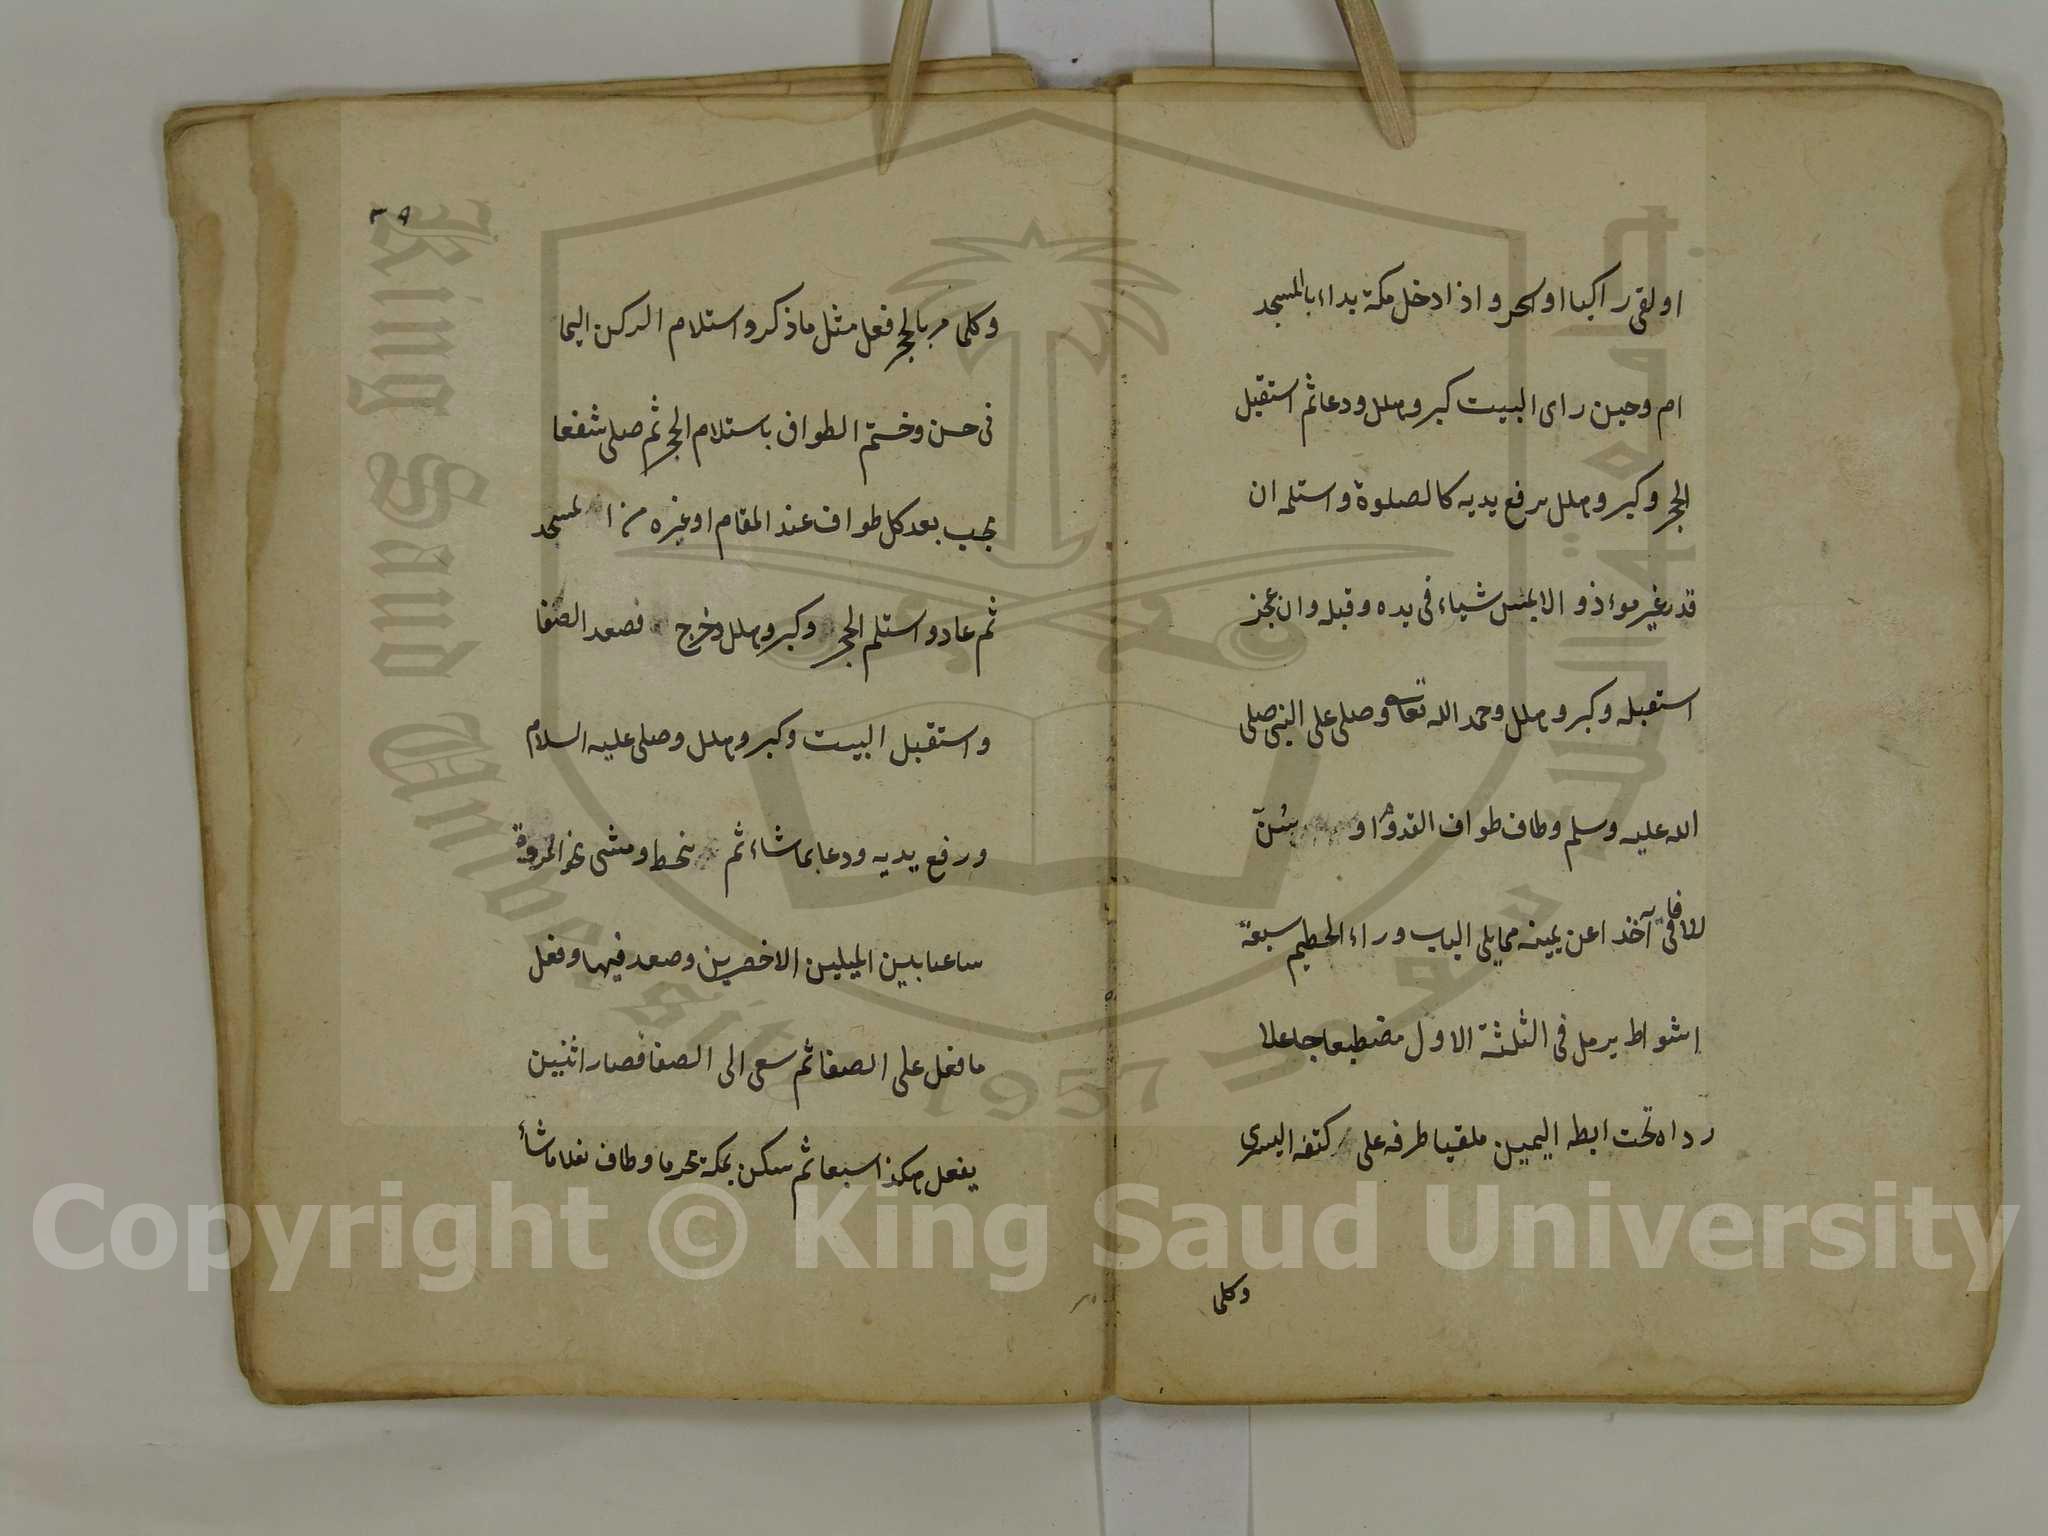 او لقى راكبا او اسحر واذا دخل مكة بداء بالمسجد
ام وحين راى البيت كبر وهلل ودعا ثم استقبل
الحجر وكبر وهلل يرفع يديه كالصلوة واستلمه ان
قدر غير موءذ والا يمس شياء فى يده وقبله وان عجز
استقبله وكبر وهلل وحمد الله تعا وصلى على النبى صلى
الله عليه وسلم وطاف طواف القدوم و سنّ
للافاقى آخذا عن يمينه مما يلى الباب وراء الحطيم سبعة
اشواط يرمل فى الثلثة الاول مضطبعا جاعلا
رداه تحت ابطه اليمين ملقيا طرفه على كتفه اليسرى
وكلما
٣٨
وكلما مر بالحجر فعل مثل ما ذكر واستلام الركن اليما
نى حسن وختم الطواف باستلام الحجر ثم صلى شفعا
يجب بعد كل طواف عند المقام او غيره من المسجد
ثم عاد واستلم الحجر وكبر وهلل وخرج فصعد الصفا
واستقبل البيت وكبر وهلل وصلى عليه السلام
ورفع يديه ودعا بما شاء ثم ينحط ومشى نحو المروة
ساعيا بين الميلين الاخضرين وصعد فيها وفعل
ما فعل على الصفا ثم سعى الى الصفا فصار اثنين
يفعل هكذا سبعا ثم سكن بمكة محرما وطاف نفلا ما شأ
King Saud University
جامعة الملك سعود
1957
Copyright © King Saud University